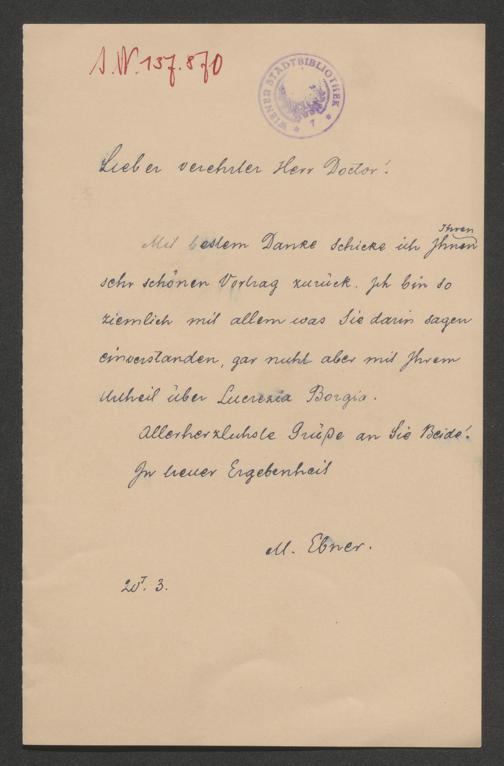 J.N. 137.870
WIENER STADTBIBLIOTHEK
Lieber verehrter Herr Doctor!
Ihren
Mit bestem Danke schicke ich Ihnen
sehr schönen Vortrag zurück. Ich bin so
ziemlich mit allem was Sie darin sagen
einverstanden, gar nicht aber mit Ihrem
Urtheil über Lucrezia Borgia.
Allerherzlichste Grüße an Sie Beide!
In treuer Ergebenheit
M. Ebner.
20T. 3.